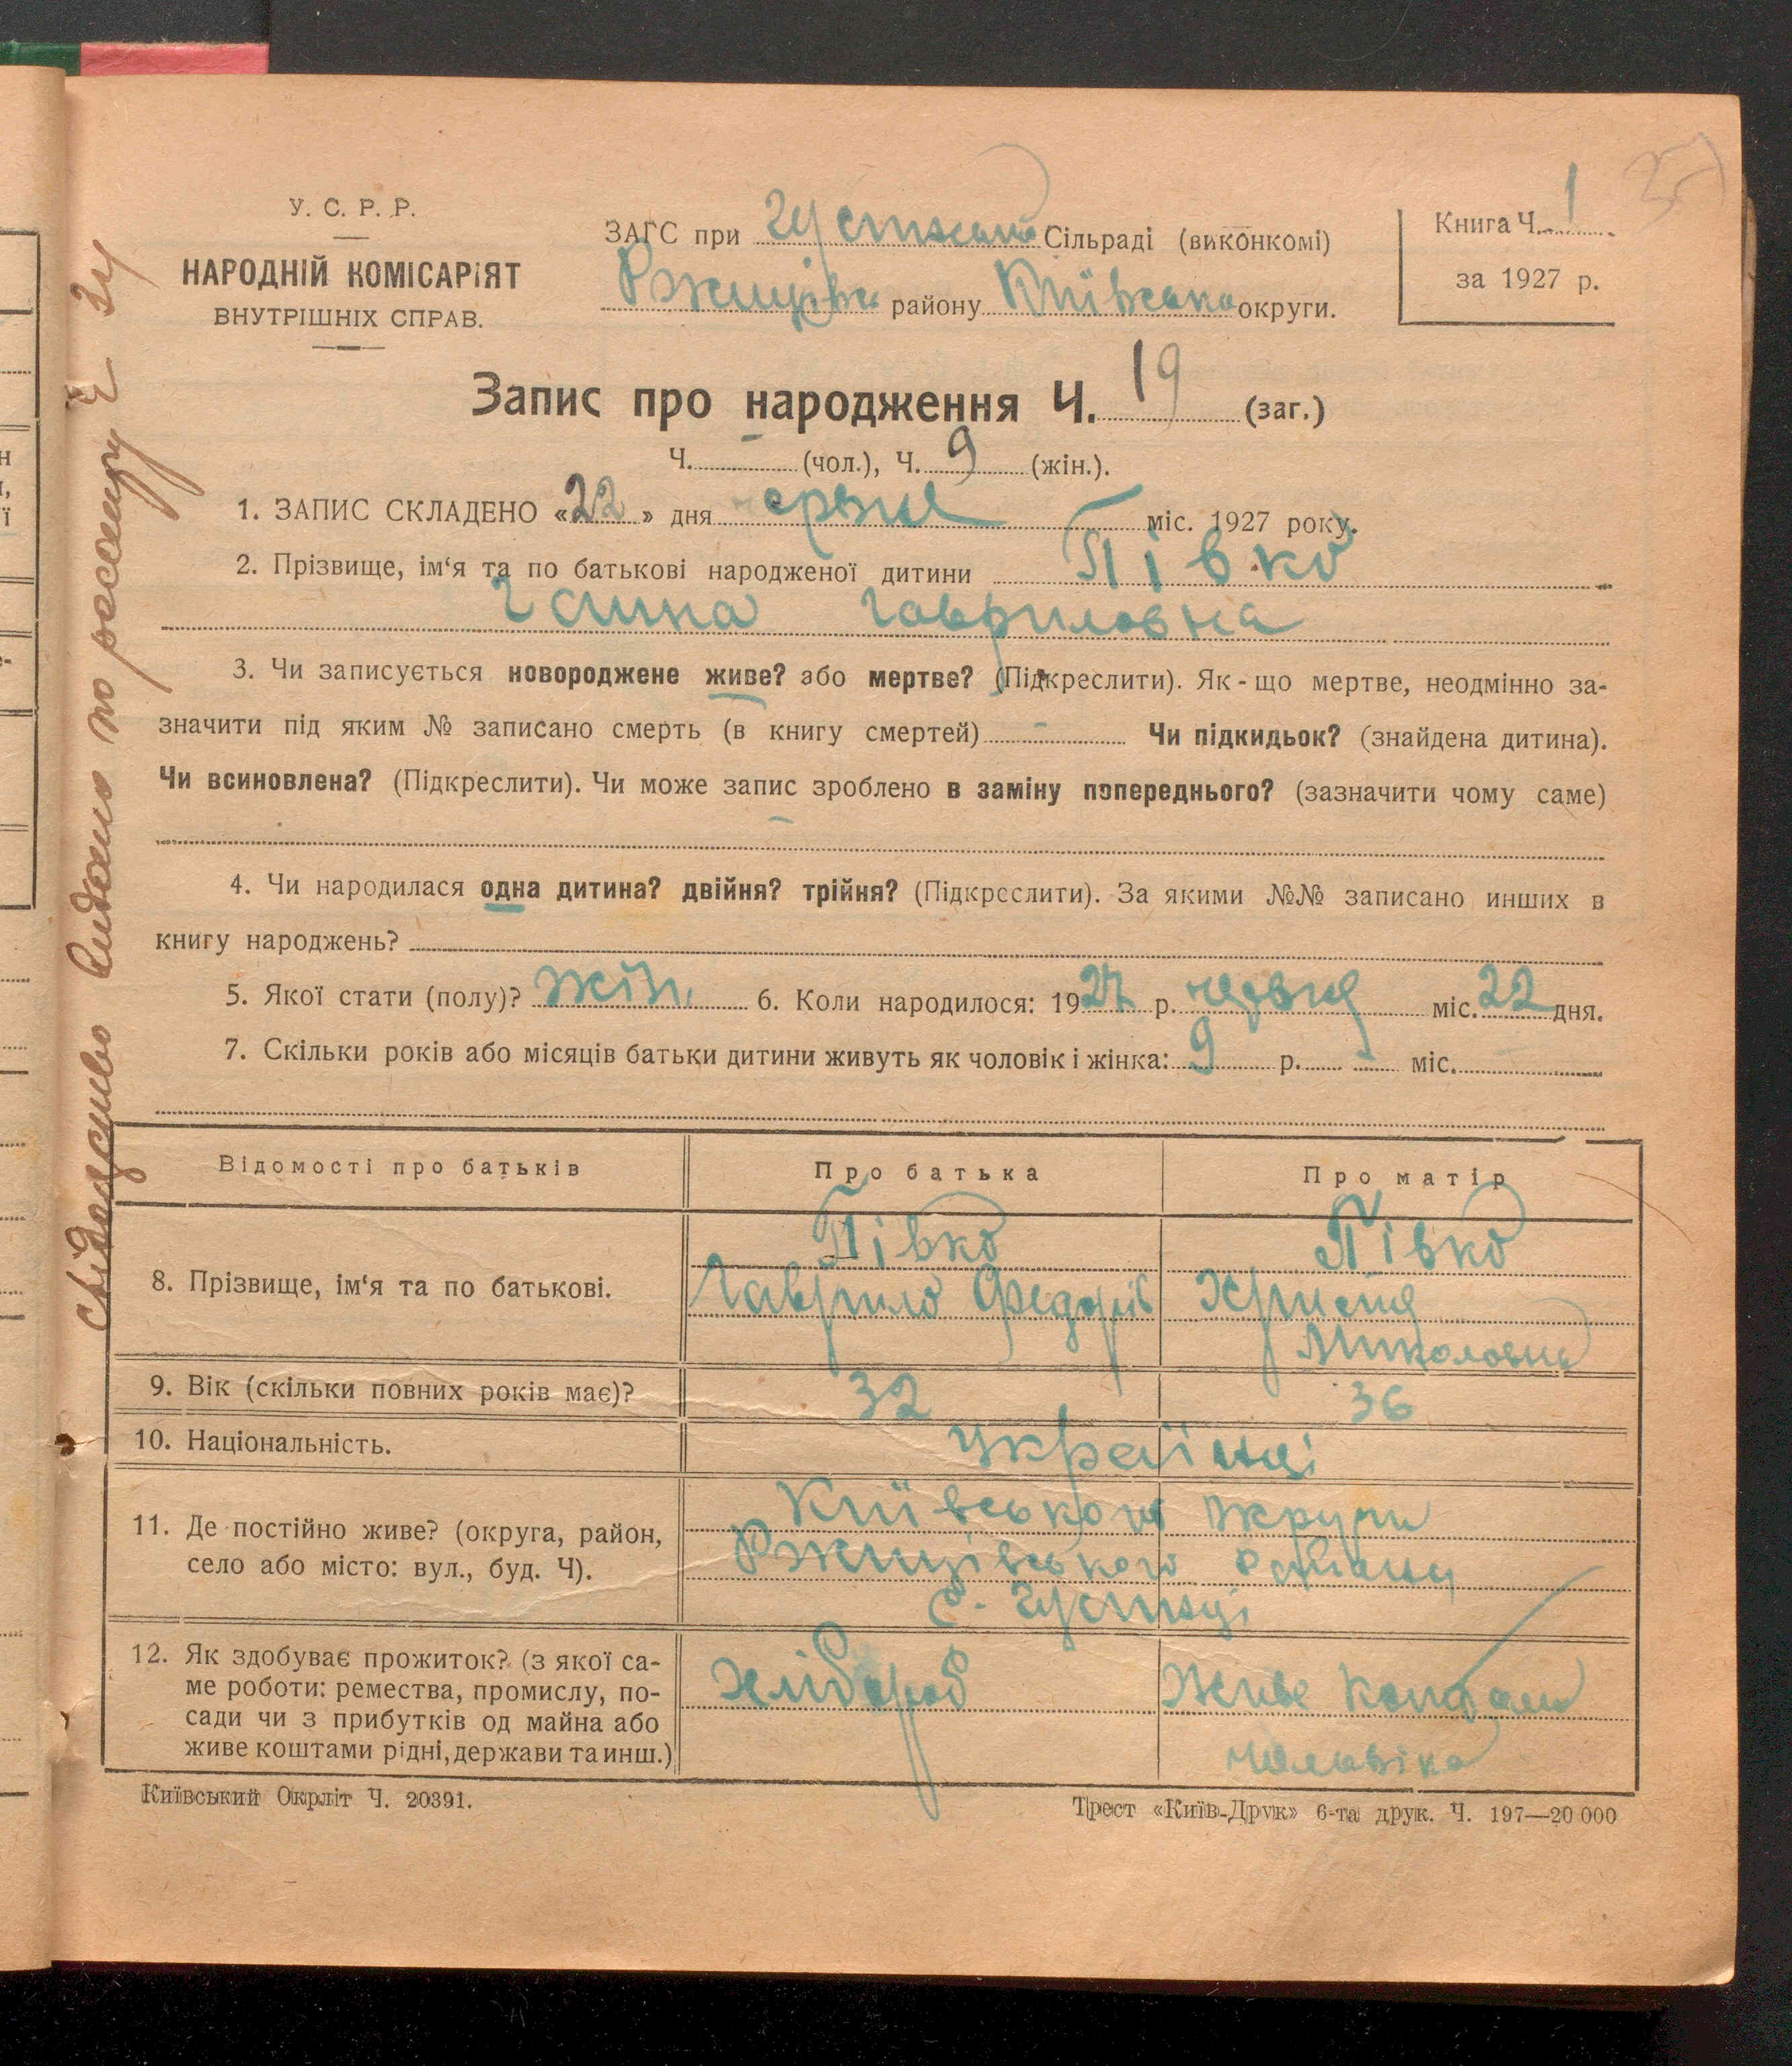 У. С. Р. Р.
НАРОДНІЙ КОМІСАРІЯТ
ВНУТРІШНІХ СПРАВ.
ЗАГС при Сільраді (виконкомі)
району округи.
Книга Ч. 1
за 1927 р.
Запис про народження Ч. 19 (заг.)
Ч. - (чол.), Ч. 9 (жін.).
1. ЗАПИС СКЛАДЕНО «22» дня червня міс. 1927 року.
2. Прізвище, ім‘я та по батькові народженої дитини Півко
Ганна Гавриловна
3. Чи записується новороджене живе? або мертве? (Підкреслити). Як-що мертве, неодмінно за-
значити під яким № записано смерть (в книгу смертей) - Чи підкидьок? (знайдена дитина).
Чи всиновлена? (Підкреслити). Чи може запис зроблено в заміну попереднього? (зазначити чому саме)
4. Чи народилася одна дитина? двійня? трійня? (Підкреслити). За якими №№ записано инших в
книгу народжень?
5. Якої стати (полу)? жін. 6. Коли народилося: 1927 р. червня міс. 22 дня.
7. Скільки років або місяців батьки дитини живуть як чоловік і жінка: 9 р. - міс.
Відомості про батьків
Про батька
Про матір
8. Прізвище, ім‘я та по батькові.
Півко
Гаврило Федорів
Півко
Христя
Миколовна
9. Вік (скільки повних років має)?
32
36
10. Національність.
українці
11. Де постійно живе? (округа, район,
село або місто: вул., буд. Ч).
Київської округи
Ржищівського району
с.
12. Як здобуває прожиток? (з якої са-
ме роботи: ремества, промислу, по-
сади чи з прибутків од майна або
живе коштами рідні, держави та инш.)
хлібороб
Живе коштами
чоловіка
Київський Окрліт Ч. 20391.
Трест «Київ-Друк» 6-та друк. Ч. 197—20 000
видано по